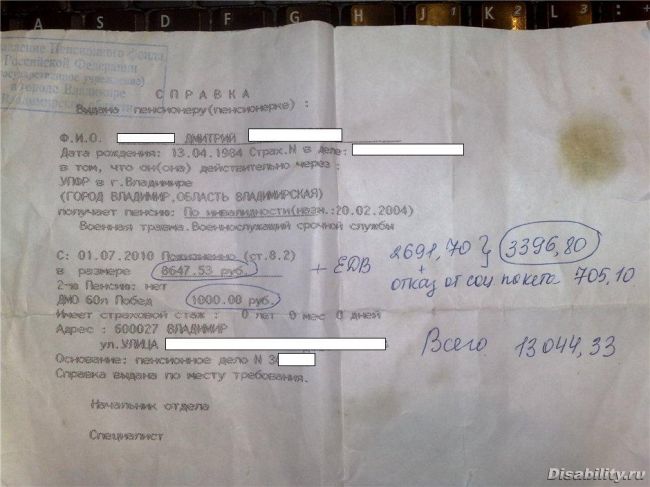 A S D F G H J 1 K 2 L 3 : +
авление Пенсионного фонда
Российской Федерации
(государственное учреждение)
в городе Владимире
Владимирской
СПРАВКА
Выдана пенсионеру(пенсионерке) :
Ф.И.О. ДМИТРИЙ
Дата рождения: 13.04.1984 Страх.N в деле:
в том, что он(она) действительно через :
УПФР в г.Владимире
(ГОРОД ВЛАДИМИР,ОБЛАСТЬ ВЛАДИМИРСКАЯ)
получает пенсию: По инвалидности(назн.:20.02.2004)
Военная травма.Военнослужащий срочной службы
С: 01.07.2010 Пожизненно (ст.8.2)
в размере 8647.53 руб. + ЕДВ 2691,70 } 3396,80
+
отказ от соц пакета 705,10
2-я Пенсия: нет
ДМО 60л Побед 1000.00 руб.
Имеет страховой стаж : 0 лет 0 мес 0 дней
Адрес : 600027 ВЛАДИМИР
ул.УЛИЦА
Всего 13044,33
Основание: пенсионное дело N 3
Справка выдана по месту требования.
Начальник отдела
Специалист
Disability.ru